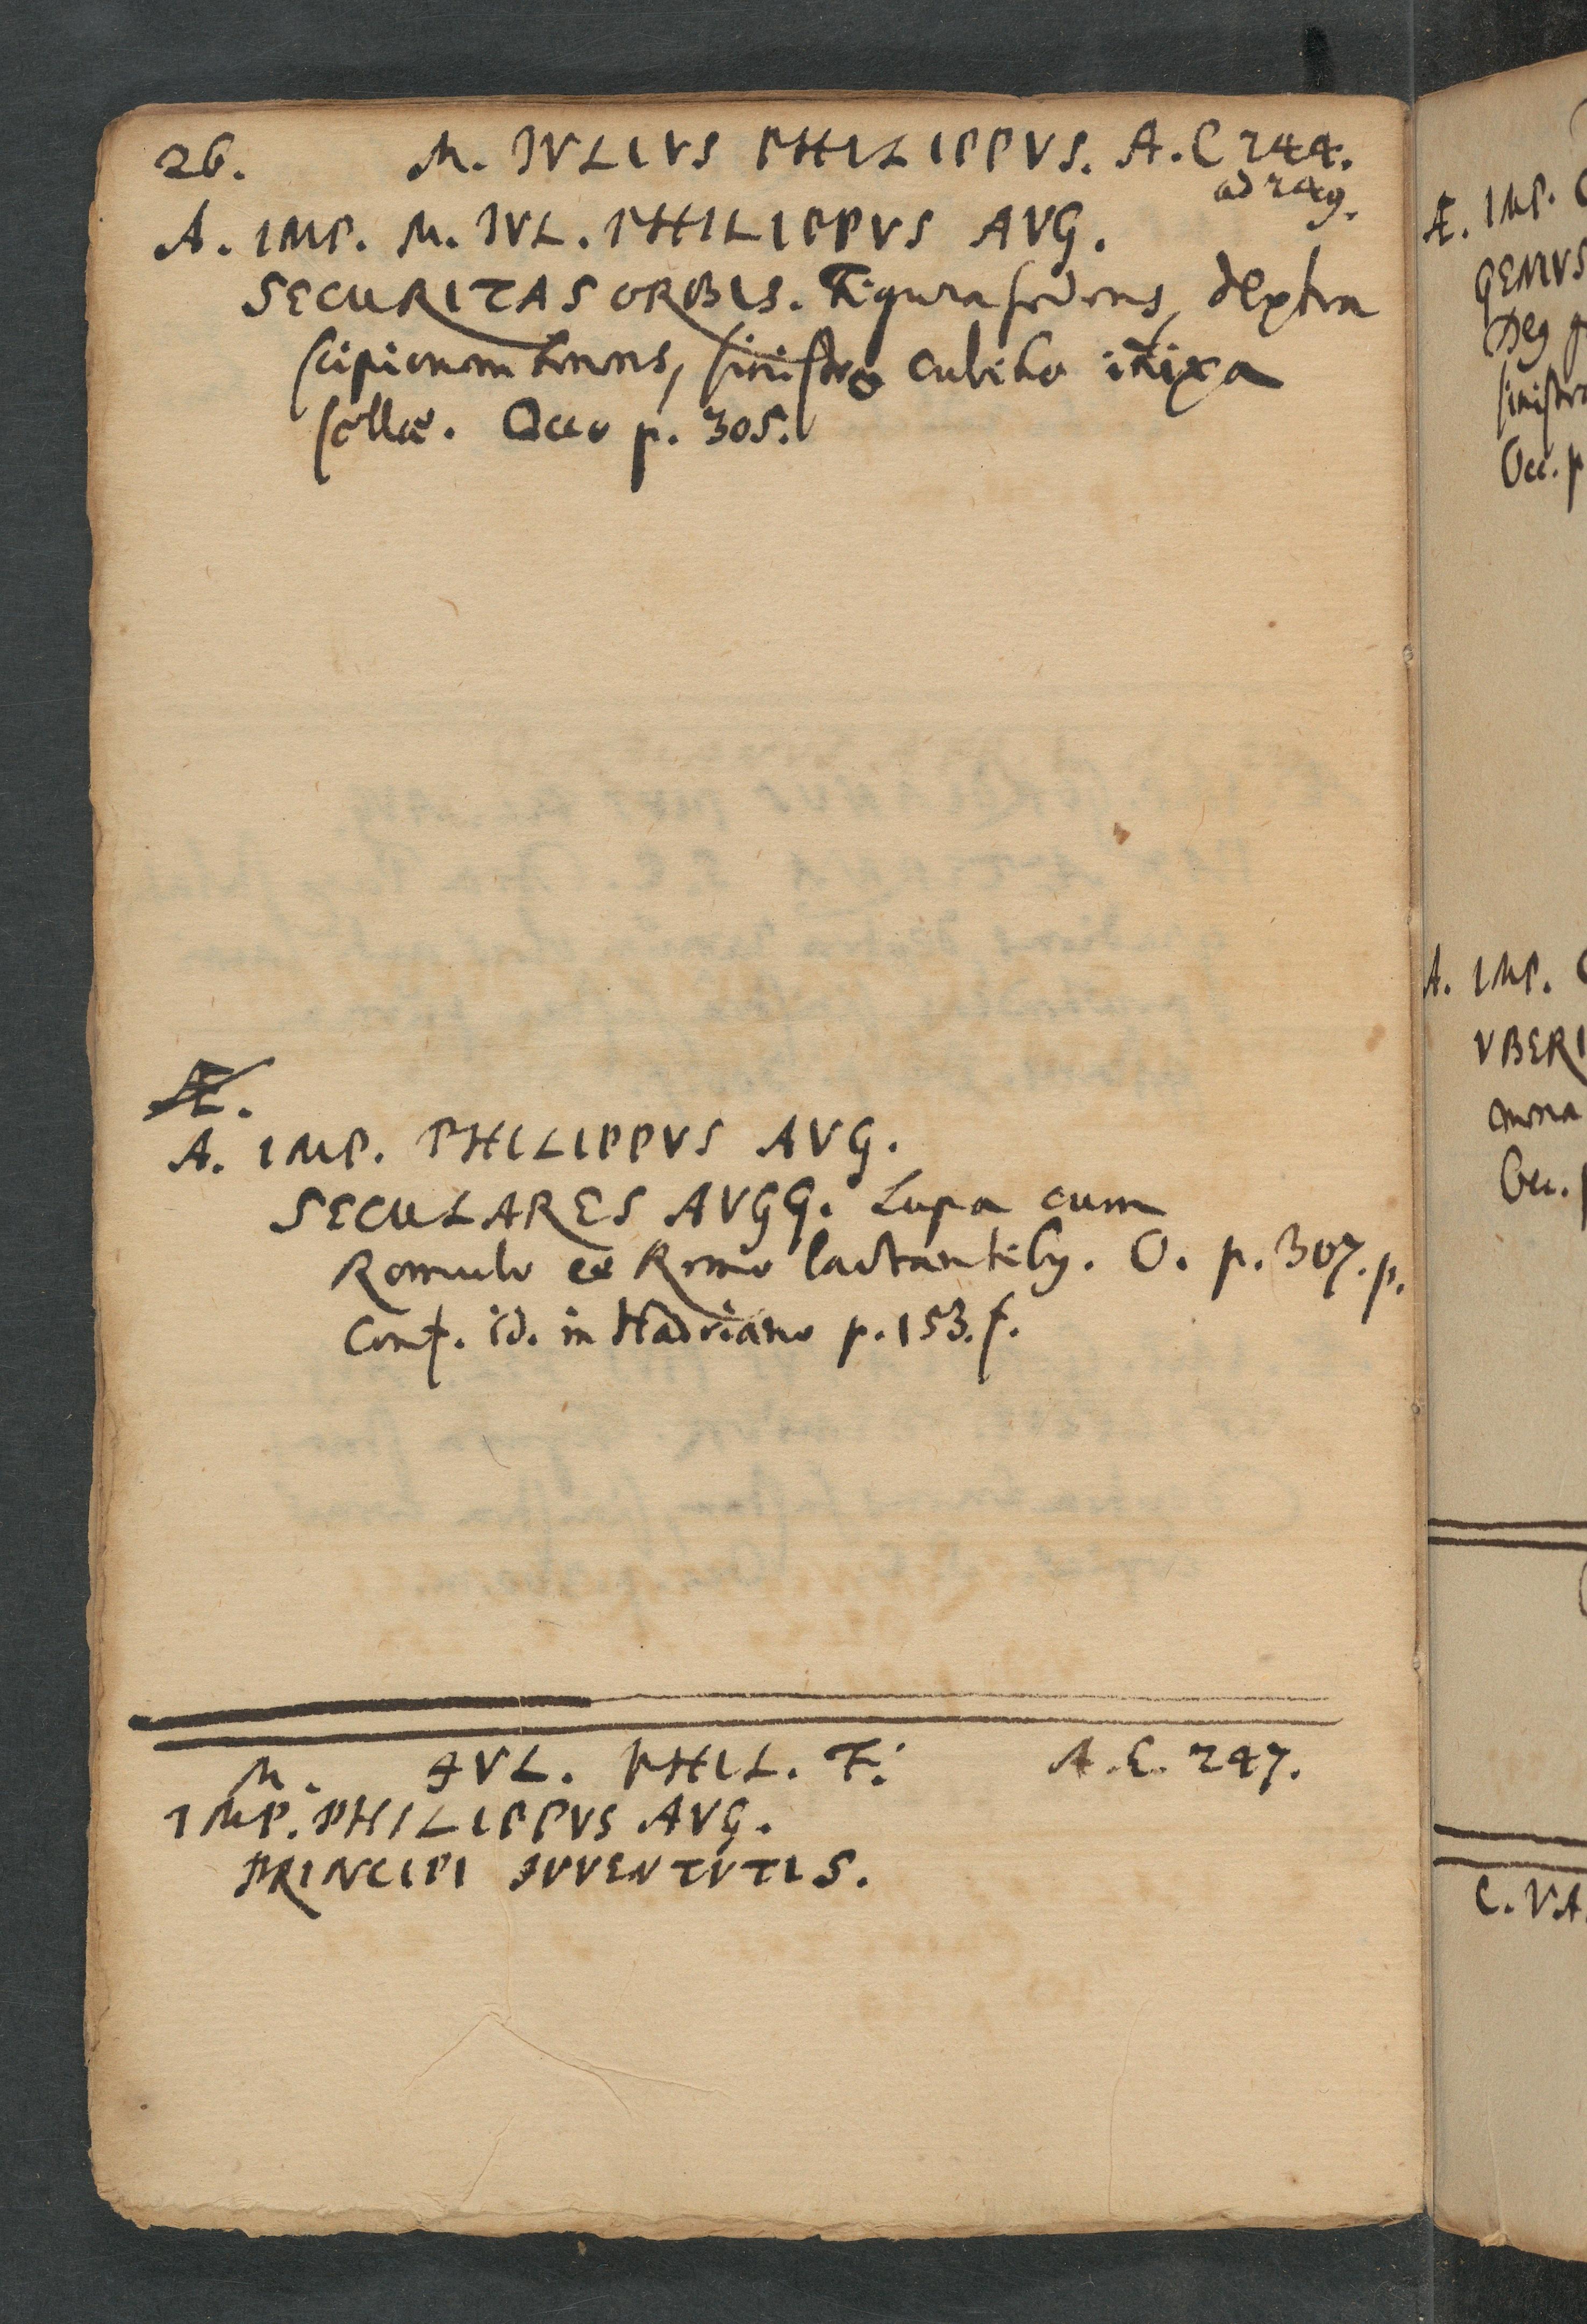 26. M. IVLIVS PHILIPPVS. A.C 244.
ad 249.
A. IMP. M. IVL. PHILIPPVS AVG.
SECURITAS ORBIS. Figura sedens, dextra
scipionem tenens, sinistro cubito inixa
sellæ. Occo p. 305.
Æ.
A. IMP. PHILIPPVS AVG.
SECULARES AVGG. Lupa cum
Romulo et Remo lactantibq. O. p. 307. p.
Conf. id. in Hadriano p. 153. f.
M. IVL. PHIL. F. A.C. 247.
IMP. PHILIPPVS AVG.
PRINCIPI IVVENTVTIS.
Æ. IMP. C
GENIVS
Deg
sinistra
Occ. p
A. IMP. C
VBERI
Occ. p
C. VA